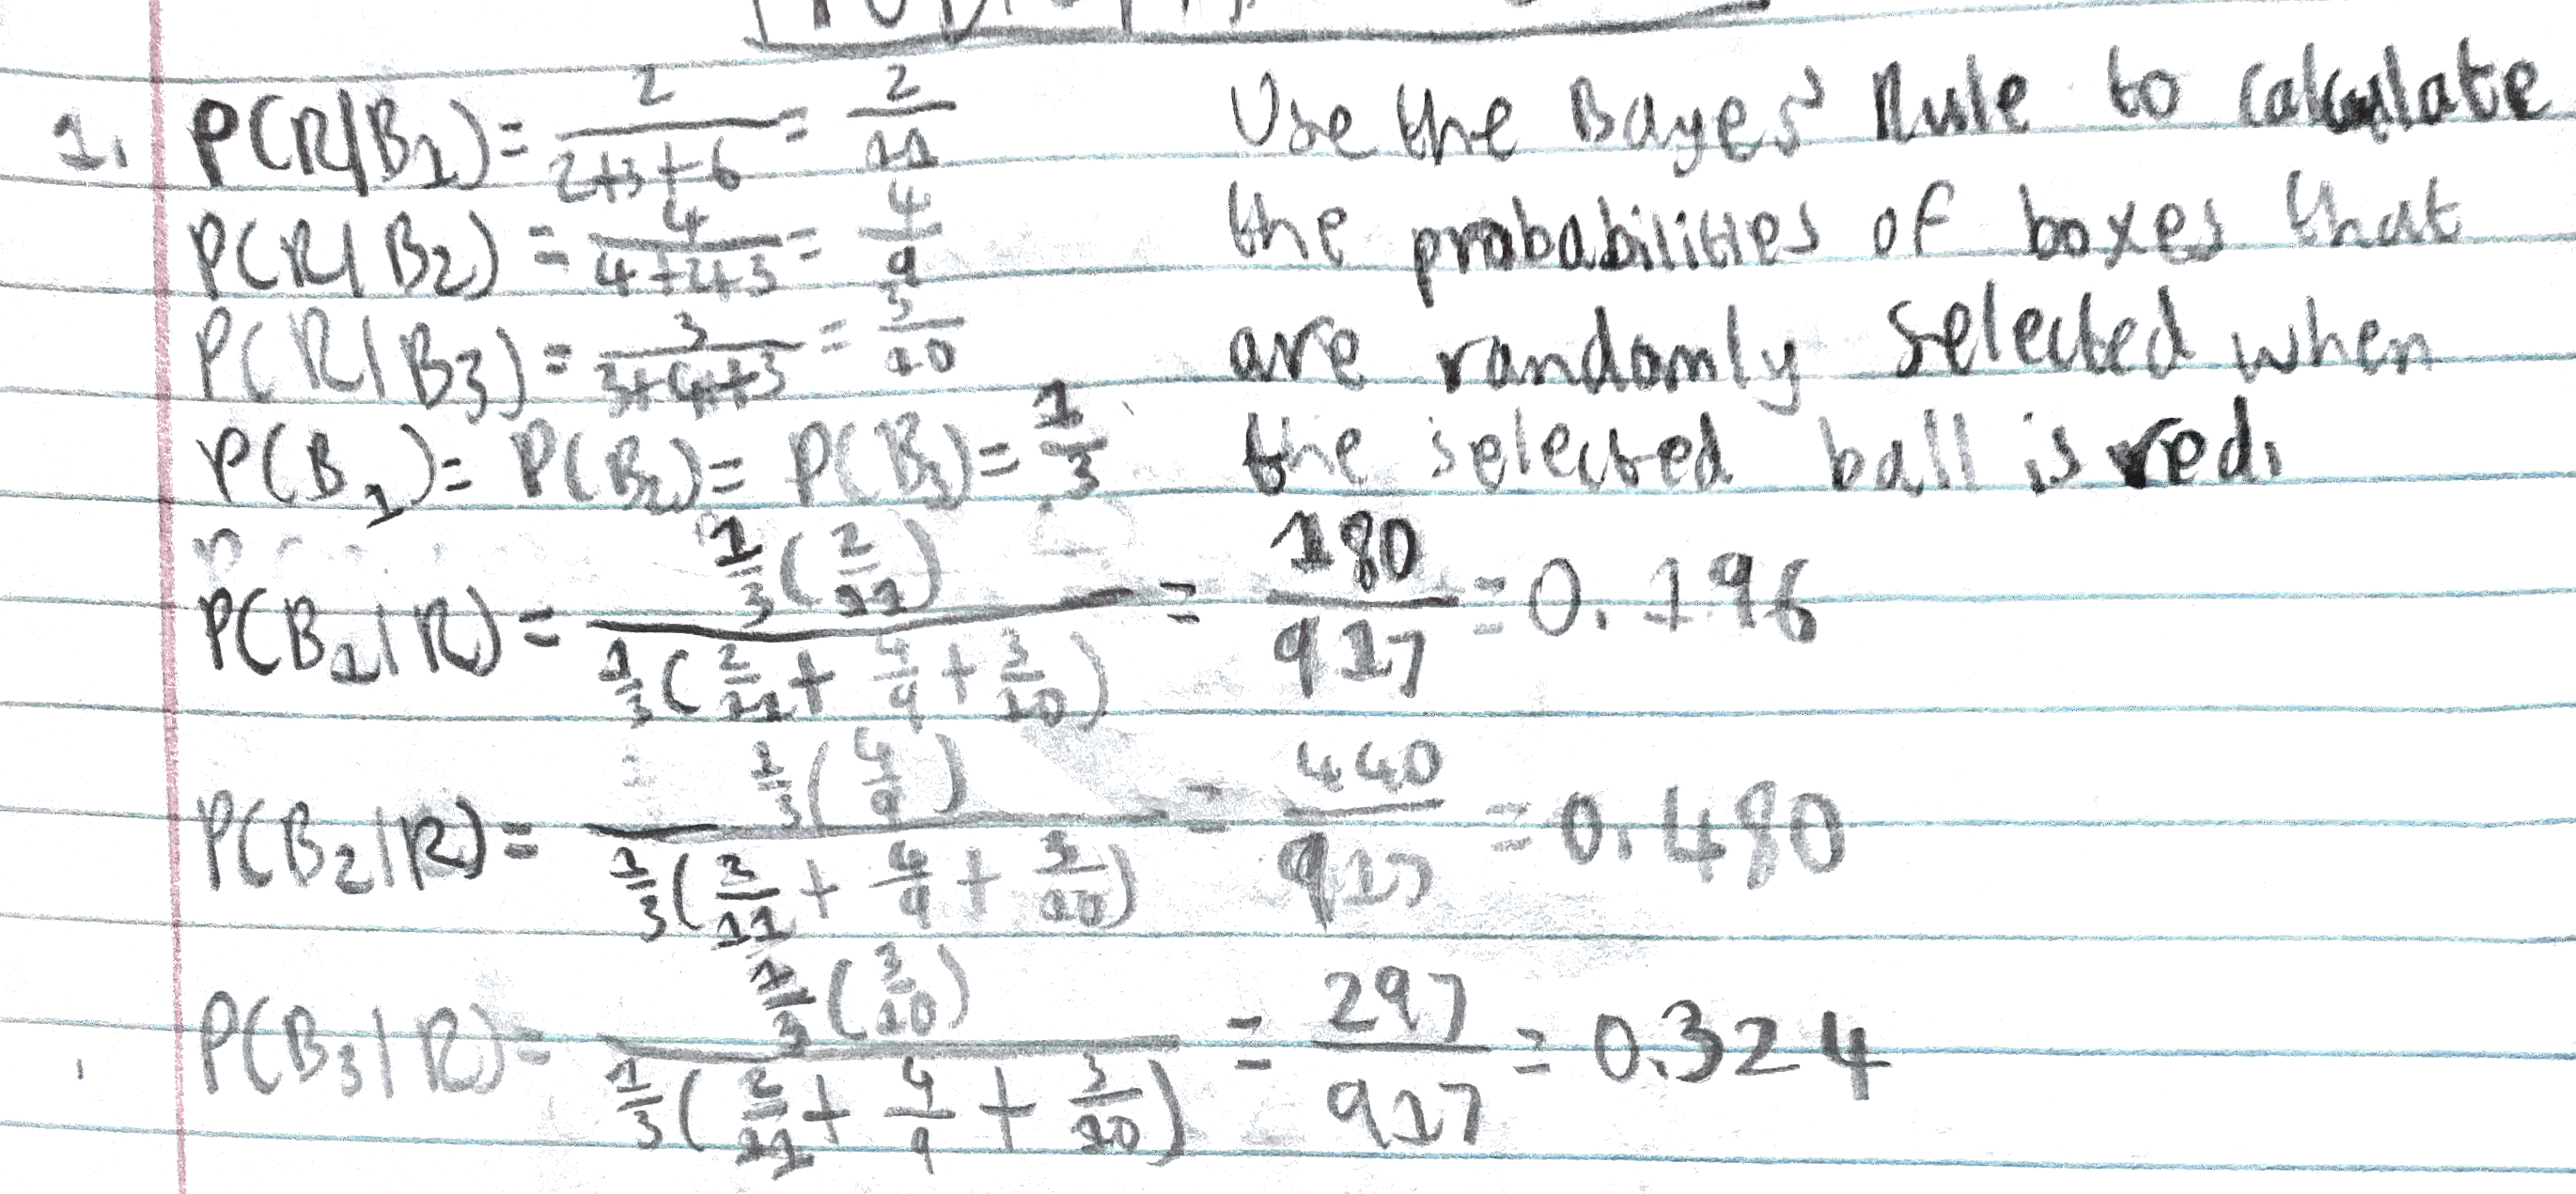 1. P(R|B1) = 2/(2+3+6) = 2/11
P(R|B2) = 4/(4+2+3) = 4/9
P(R|B3) = 3/(3+4+3) = 3/10
P(B1) = P(B2) = P(B3) = 1/3
Use the Bayes' Rule to calculate
the probabilities of boxes that
are randomly selected when
the selected ball is red.
P(B1|R) = 1/3(2/11) / 1/3(2/11 + 4/9 + 3/10) = 180/917 = 0.196
P(B2|R) = 1/3(4/9) / 1/3(2/11 + 4/9 + 3/10) = 440/917 = 0.480
P(B3|R) = 1/3(3/10) / 1/3(2/11 + 4/9 + 3/10) = 297/917 = 0.324